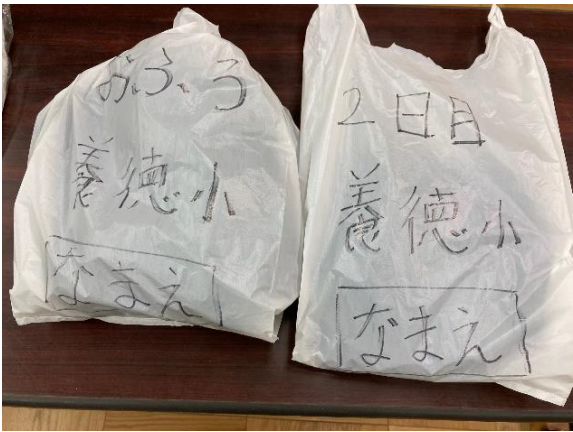 おふろ
養徳小
なまえ
2日目
養徳小
なまえ